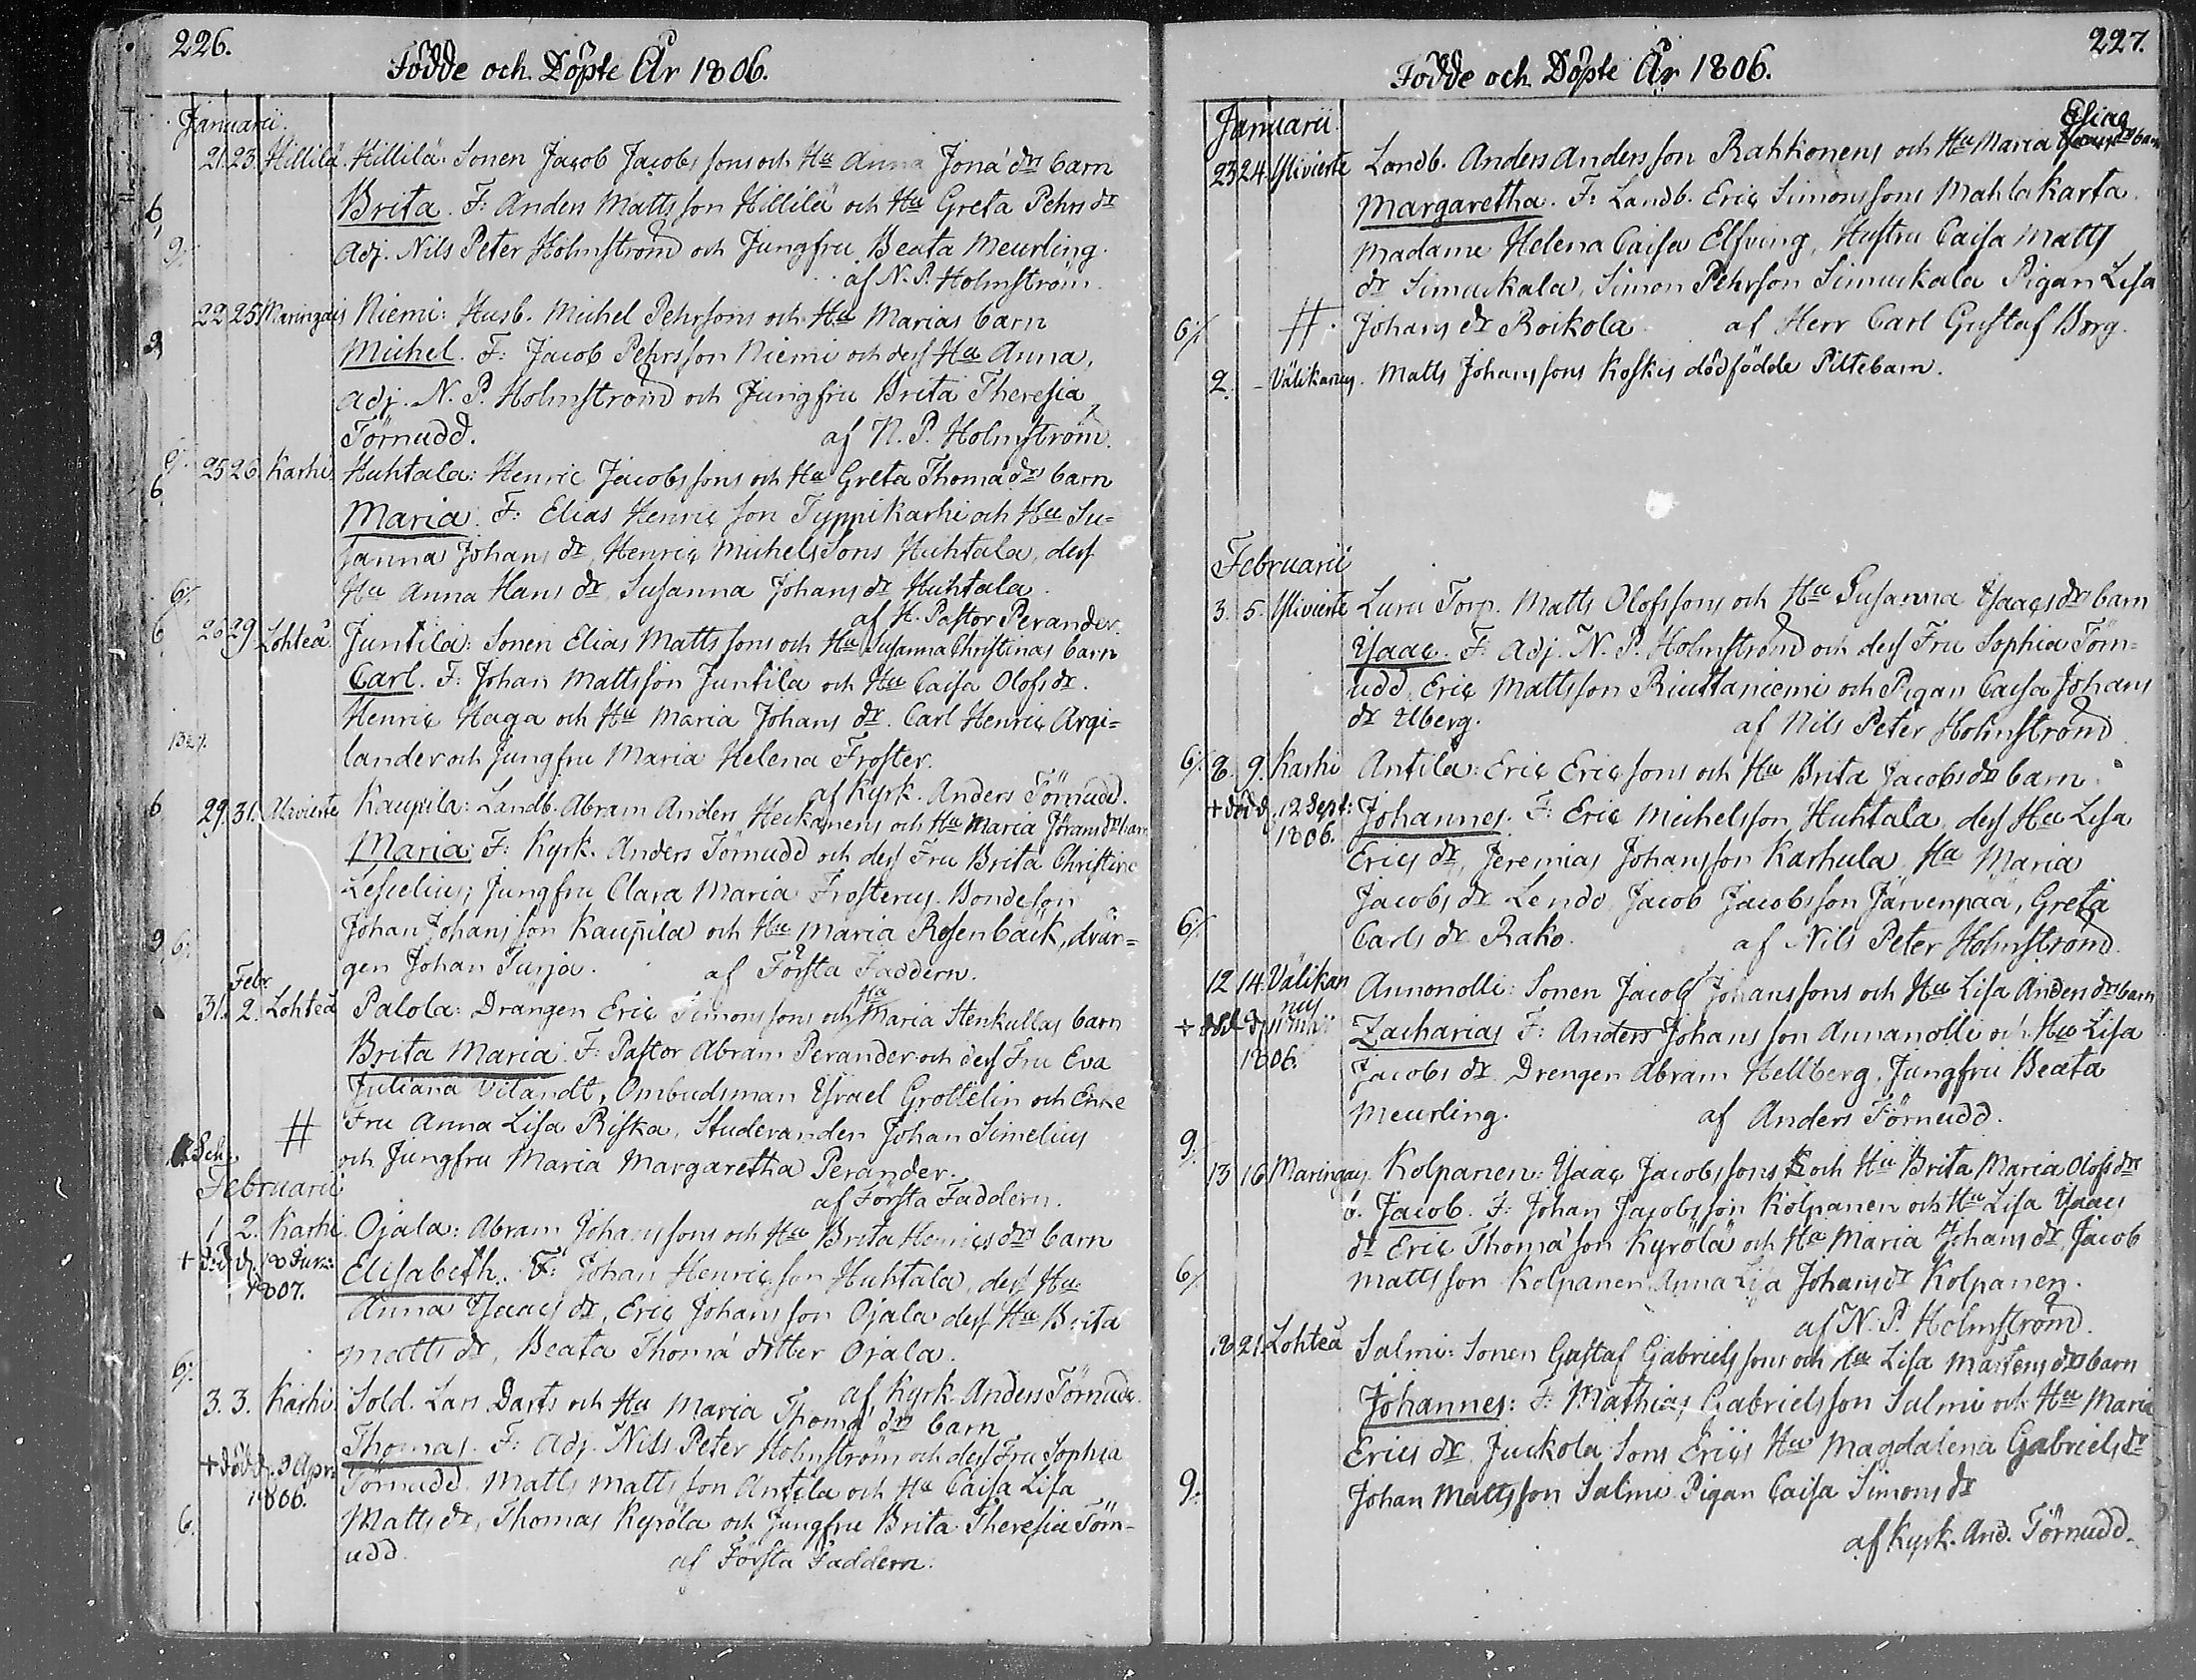 226.
Födde och Döpte År 1806.
Januarii.
21. 23. Hillilä. Hillilä: Sonen Jacob Jacobs sons och Hu Anna Jona dr barn
6. Brita. F: Anders Matts son Hillilä och Hu Greta Pehrs dr
9. Adj. Nils Peter Holmström och Jungfru Beata Meurling.
af N. P. Holmström.
22 25 Maringais Niemi: Husb. Michel Pehrsons och Hu Marias barn
9 Michel. F: Jacob Pehrsson Niemi och dess Hu Anna,
Adj. N. P. Holmström och Jungfru Brita Theresia
Törnudd. af N. P. Holmström.
9. 25 26. Karhi Huhtala: Henric Jacobs sons och Hu Greta Thoma dr barn
6. Maria. F: Elias Henric son Typpikarhi och Hu Su=
sanna Johans dr, Henric Michels Sons Huhtala, dess
6. Hu Anna Hans dr, Susanna Johans dr Huhtala.
af H. Pastor Perander.
6. 26 29 Lohteå Juntila: Sonen Elias Matts sons och Hu Susanna Christinas barn
Carl. F: Johan Mattsson Juntila och Hu Caisa Olofs dr.
Henric Haga och Hu Maria Johans dr. Carl Henric Argi=
lander och Jungfru Maria Helena Froster.
af Kyrk. Anders Törnudd.
6 29. 31. Alivierte Kaupila: Landb. Abram Anders Heckanens och Hu Maria Jörans dr barn
Maria: F: Kyrk. Anders Törnudd och dess Fru Brita Christine
Lescelius, Jungfru Clara Maria Frosterus. Bondeson
9 6. Johan Johans son Kaupila och Hu Maria Rosenbäck, drän=
gen Johan Turja. af Första Faddern.
Febr.
31. 2. Lohteå Palola: Drängen Eric Simons sons och Hu Maria Stenkullas barn
Brita Maria. F: Pastor Abram Perander och dess Fru Eva
Juliana Vitandt, Ombudsman Ysrael Grottelin och Enke
# Fru Anna Lisa Riska, Studeranden Johan Simelius
och Jungfru Maria Margaretha Perander.
af Första Faddern.
Februarii
1. 2. Karhi Ojala: Abram Johans sons och Hu Brita Henrics drs barn
+ död d. 1807. Elisabeth. F: Johan Henricsson Huhtala, dess Hu
Anna Ysaacs dr, Eric Johans son Ojala dess Hu Brita
Matts dr, Beata Thoma dotter Ojala.
6. af Kyrk. Anders Törnudd.
3. 3. Karhi Sold. Lars Darts och Hu Maria Thoma drs barn
+ död d. 9 Apr: 1806. Thomas. F: Adj. Nils Peter Holmström och dess Fru Sophia
Törnudd. Matts Matts son Antila och Hu Caisa Lisa
6. Matts dr, Thomas Kyrölä och Jungfru Brita Theresia Törn-
udd. af Första Faddern.
227.
Födde och Döpte År 1806.
Januarii
23 24. Ylivierte Landb. Anders Anders son Rahkonens och Hu Maria Elias dr barn
Margaretha. F: Landb. Eric Simons sons Mahlakarta.
Madame Helena Caisa Elfving, Hustru Caisa Matts
dr Simuckala, Simon Pehrson Simuckala Pigan Lisa
6/. #. Johans dr Roikola. af Herr Carl Gustaf Borg.
2. - Välikanus. Matts Johans sons Koskis dödfödde Piltebarn.
Februarii
3. 5. Ylivierte Luru Torp. Matts Olofs sons och Hu Susanna Ysaacs dr barn
Ysaac. F: Adj. N. P. Holmström och dess Fru Sophia Törn=
udd, Eric Mattsson Riuttaniemi och Pigan Caisa Johans
dr Uberg. af Nils Peter Holmström
6/. 8. 9. Karhi Antila: Eric Eric sons och Hu Brita Jacobs drs barn
+ död d. 12 Sept: 1806. Johannes. F: Eric Michelsson Huhtala, dess Hu Lisa
Erics dr, Jeremias Johansson Karhula, Hu Maria
Jacobs dr Lendo, Jacob Jacobsson Järvenpää, Greta
6/. Carls dr Raho. af Nils Peter Holmström.
12 14. Välikannus Annonolli: Sonen Jacob Johans sons och Hu Lisa Anders dr barn
1806. Zacharias F: Anders Johans son Annanolli och Hu Lisa
Jacobs dr. Drengen Abram Hellberg. Jungfru Beata
Meurling. af Anders Törnudd.
9.
13 16 Maringais Kolpanen: Ysaac Jacobs sons och Hu Brita Maria Olofs drs
b. Jacob. F: Johan Jacobsson Kolpanen och Hu Lisa Ysaacs
dr Eric Thoma son Kyrölä och Hu Maria Johans dr, Jacob
6/. Mattsson Kolpanen Anna Lisa Johans dr Kolpanen.
af N. P. Holmström.
18 21. Lohteå Salmi: Sonen Gustaf Gabriels sons och Hu Lisa Mårtens drs barn
Johannes: F: Mathias Gabrielsson Salmi och Hu Maria
Erics dr. Juckola Sons Erics Hu Magdalena Gabriels dr
9. Johan Mattsson Salmi Pigan Caisa Simons dr
af Kyrk. And. Törnudd.